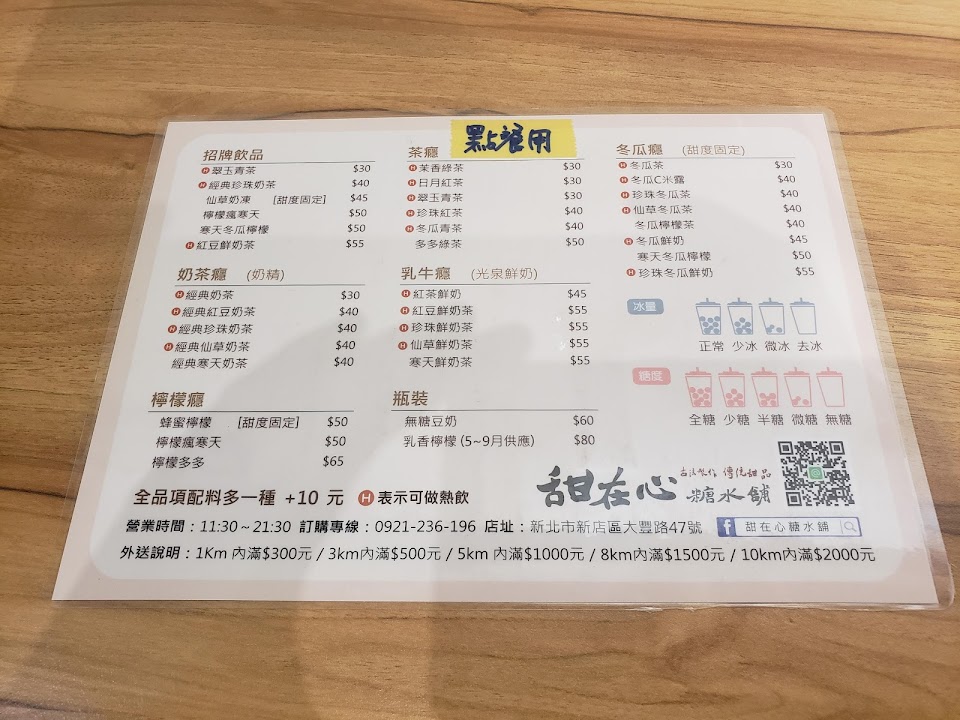 點餐用
招牌飲品
H 翠玉青茶 $30
H 經典珍珠奶茶 $40
仙草奶凍 [甜度固定] $45
檸檬瘋寒天 $50
寒天冬瓜檸檬 $50
H 紅豆鮮奶茶 $55
奶茶癮 (奶精)
H 經典奶茶 $30
H 經典紅豆奶茶 $40
H 經典珍珠奶茶 $40
H 經典仙草奶茶 $40
經典寒天奶茶 $40
檸檬癮
蜂蜜檸檬 [甜度固定] $50
檸檬瘋寒天 $50
檸檬多多 $65
茶癮
H 茉香綠茶 $30
H 日月紅茶 $30
H 翠玉青茶 $30
H 珍珠紅茶 $40
H 冬瓜青茶 $40
多多綠茶 $50
乳牛癮 (光泉鮮奶)
H 紅茶鮮奶 $45
H 紅豆鮮奶茶 $55
H 珍珠鮮奶茶 $55
H 仙草鮮奶茶 $55
寒天鮮奶茶 $55
瓶裝
無糖豆奶 $60
乳香檸檬 (5~9月供應) $80
冬瓜癮 (甜度固定)
H 冬瓜茶 $30
H 冬瓜C米露 $40
H 珍珠冬瓜茶 $40
H 仙草冬瓜茶 $40
冬瓜檸檬茶 $40
H 冬瓜鮮奶 $45
寒天冬瓜檸檬 $50
H 珍珠冬瓜鮮奶 $55
冰量
正常 少冰 微冰 去冰
糖度
全糖 少糖 半糖 微糖 無糖
甜在心 古法製作 傳統甜品
糖水舖
全品項配料多一種 +10 元 H 表示可做熱飲
營業時間：11:30～21:30 訂購專線：0921-236-196 店址：新北市新店區大豐路47號 f 甜在心糖水舖
外送說明：1Km 內滿$300元 / 3km內滿$500元 / 5km 內滿$1000元 / 8km內滿$1500元 / 10km內滿$2000元